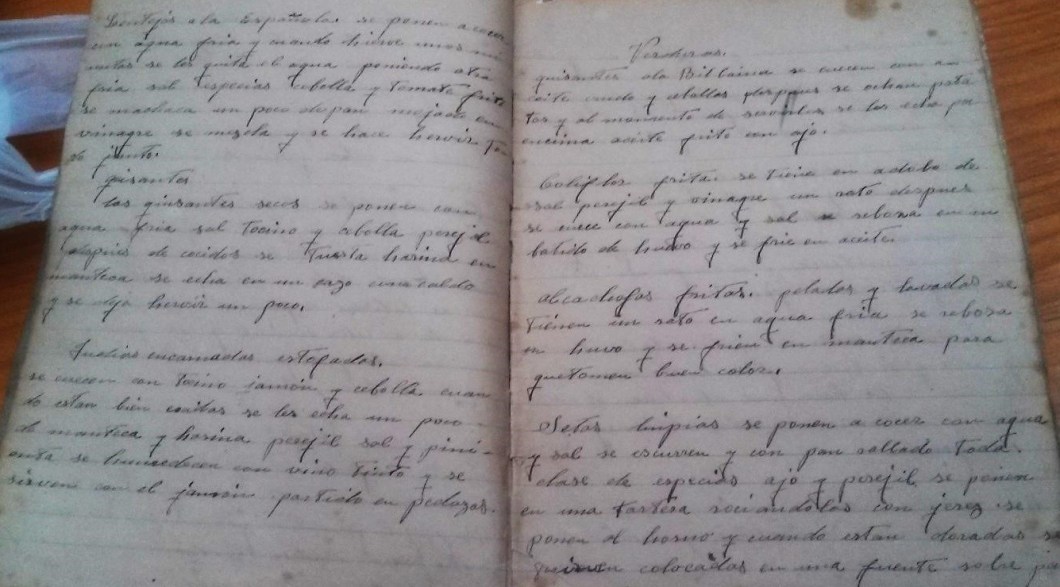 Lentejas a la Española. se ponen a cocer
con agua fria y cuando hierve unos mi
nutos se les quita el agua poniendo otra
fria sal especias cebolla y tomate frito
se machaca un poco de pan mojado en
vinagre se mezcla y se hace hervir
junto.
guisantes
Los guisantes secos se ponen con
agua fria sal tocino y cebolla perejil
despues de cocidos se tuesta harina en
manteca se echa en un cazo con caldo
y se deja hervir un poco.
Judias encarnadas estofadas.
se cuecen con tocino jamón y cebolla cuan
do estan bien cocidas se les echa un poco
de manteca y harina perejil sal y pimi-
enta se humedecen con vino tinto y se
sirven con el jamón partido en pedazos.
Verduras.
guisantes a la Bilbaina se cuecen con a
ceite crudo y cebollas despues se echan pata
tas y al momento de servirlos se les echa por
encima aceite frito con ajo.
Coliflor frita. se tiene en adobo de
sal perejil y vinagre un rato despues
se cuece con agua y sal se reboza en un
batido de huevo y se frie en aceite.
alcachofas fritas. peladas y lavadas se
tienen un rato en agua fria se reboza
en huevo y se frien en manteca para
que tomen buen color.
Setas limpias se ponen a cocer con agua
y sal se escurren y con pan rallado toda
clase de especias ajo y perejil se ponen
en una tartera rociandolas con jerez se
ponen al horno y cuando estan doradas se
sirven colocadas en una fuente sobre